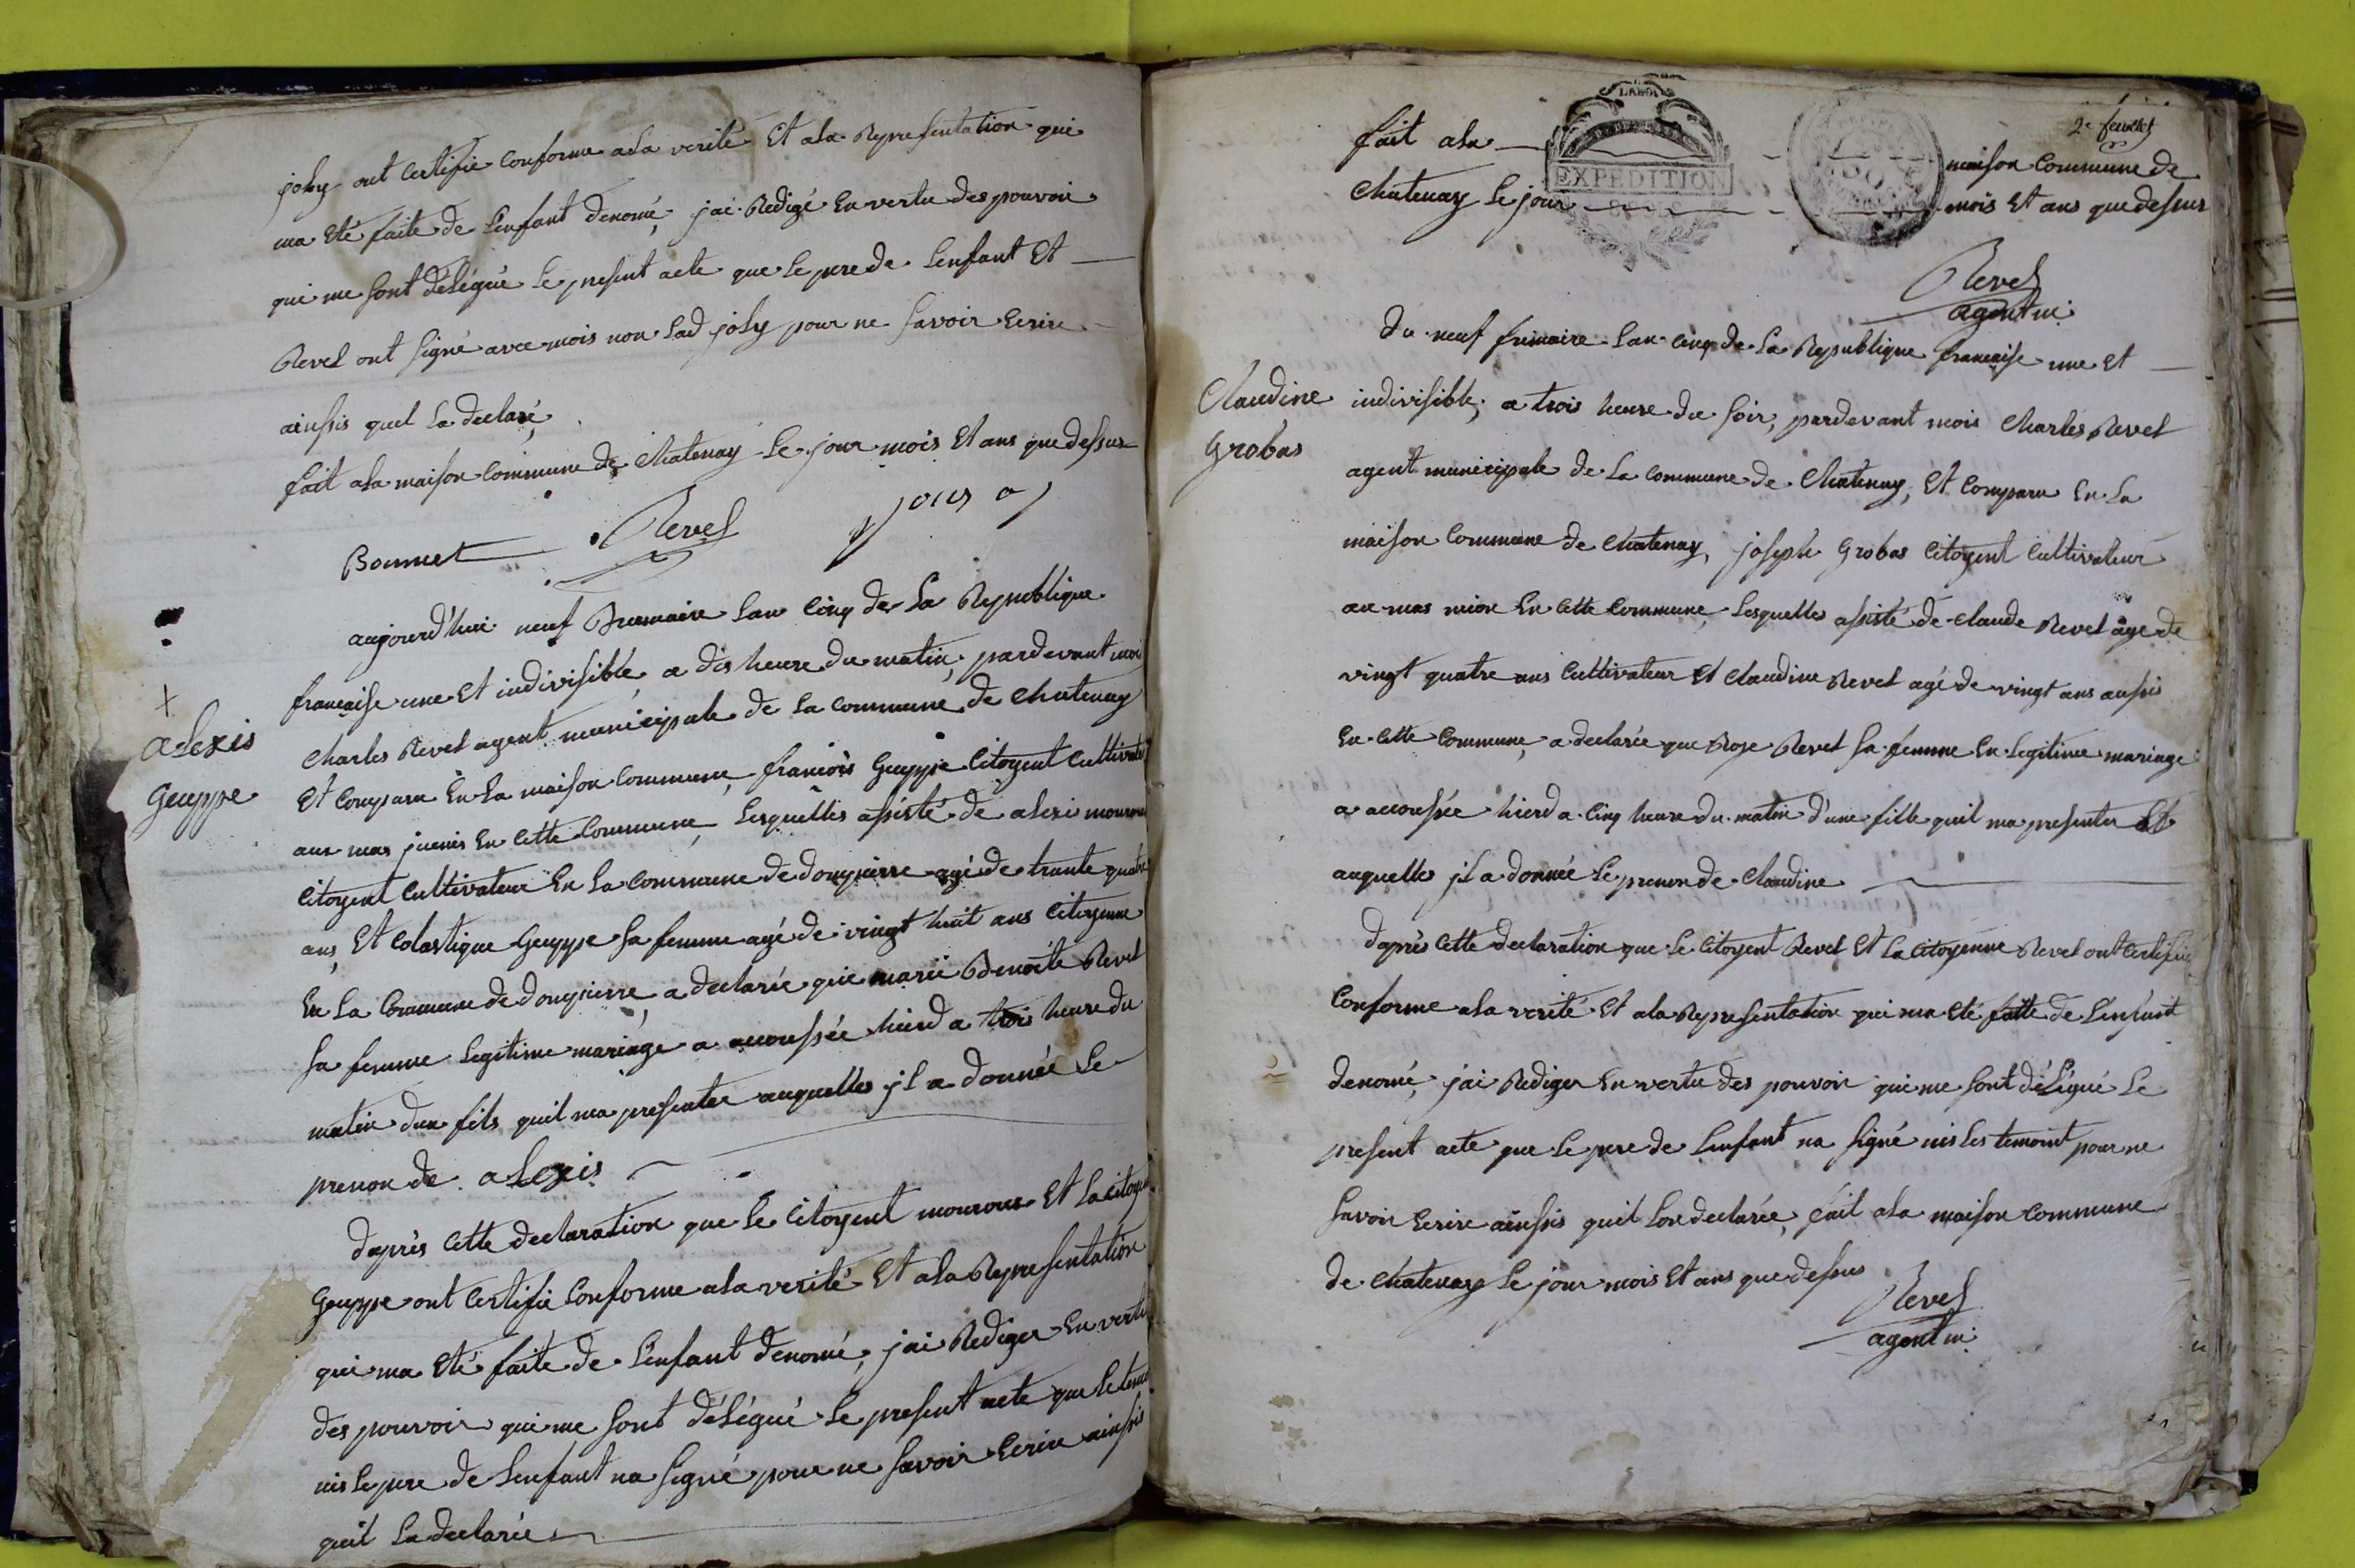 joly ont certifie conforme ala verité Et ala Representation qui
ma eté faite de Lenfant denomé, jai Redigé En vertu des pouvoir
qui me sont délégué Le present acte que Le pere de Lenfant Et
Revel ont signé avec mois non Lad joly pour ne savoir Ecrire
ainssis quel La declaré
fait ala maison commune de Chatenay Le jour mois Et ans que dessus
Bonnet Revel
aujourd'hui neuf Brumaire Lan cinq de La Republique
française une Et indivisible, a dis heure du matin, pardevant moi
Charles Revel agent municipale de La commune de Chatenay
Et comparu En La maison commune, francois Geuppe Citoyent
aux mas juenis En cette commune Lesquelles assisté de alexi
Citoyent cultivateur En La commune de dompierre agé de trante quatre
ans, Et colastique Geuppe sa femme agé de vingt huit ans citoyenne
En La commune de dompierre, a declarée que marie Benoite Revel
sa femme Legitime mariage a accoussée hierd a trois heure du
matin dun fils quil ma presenter auquelles jl a donnée Le
prenon de alexis
+
alexis
Geuppe
daprès cette declaration que Le Citoyent mourous Et La
Geuppe ont certifie conforme ala verité Et ala Representation
qui ma eté faite de Lenfant denomé, jai Rediger En vertu
des pouvoir qui me sont délégué Le present acte que Le
nis Le pere de Lenfant na signé pour ne savoir Ecrire ainssis
quil La declarée
2e feuillet
fait ala maison commune de
LA LOI
EXPEDITION
Chatenay Le jour mois Et ans que dessus
Revel
agent m
du neuf frimaire Lan cinq de La Republique française une Et
Claudine
Grobas
indivisible, a trois heure du soir, pardevant mois Charles Revel
agent municipale de La commune de Chatenay, Et comparu En La
maison commune de Chatenay, joseph Grobas Citoyent cultivateur
au mas mion En cette commune Lesquelles assisté de Claude Revel âge de
vingt quatre ans cultivateur Et Claudine Revel agé de vingt ans aussis
En cette commune, a declarée que Rose Revel sa femme En Legitime mariage
a accoussée hierd a cinq heure du matin d'une fille quil ma presenter Et
auquelles jl a donnée Le prenon de Claudine
daprès cette declaration que Le Citoyent Revel Et La Citoyenne Revel ont certifie
conforme ala verité Et ala Representation qui ma eté faitte de Lenfant
denomé, jai Rediger En vertu des pouvoir qui me sont délégué Le
present acte que Le pere de Lenfant na signé nis Les temoint pour ne
savoir Ecrire ainssis quil Lon declarée, fait ala maison commune
de Chatenay Le jour mois Et ans que dessus
Revel
agent m